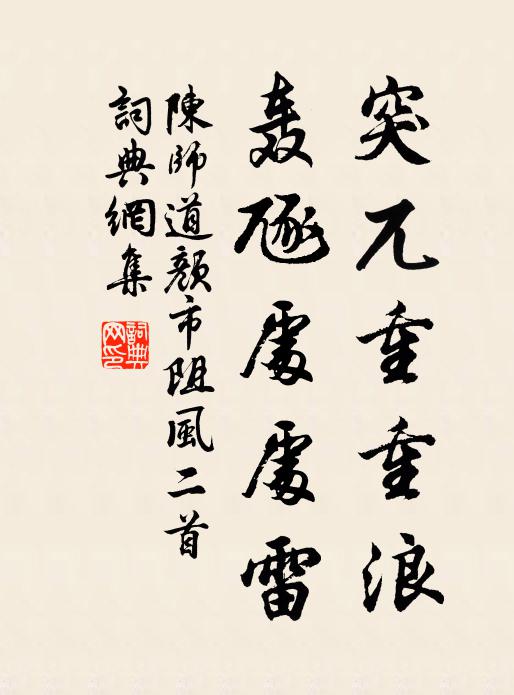 突兀重重浪
轰豗處處雷
陳師道顏市阻風二首
詞典網集
詞典
网印